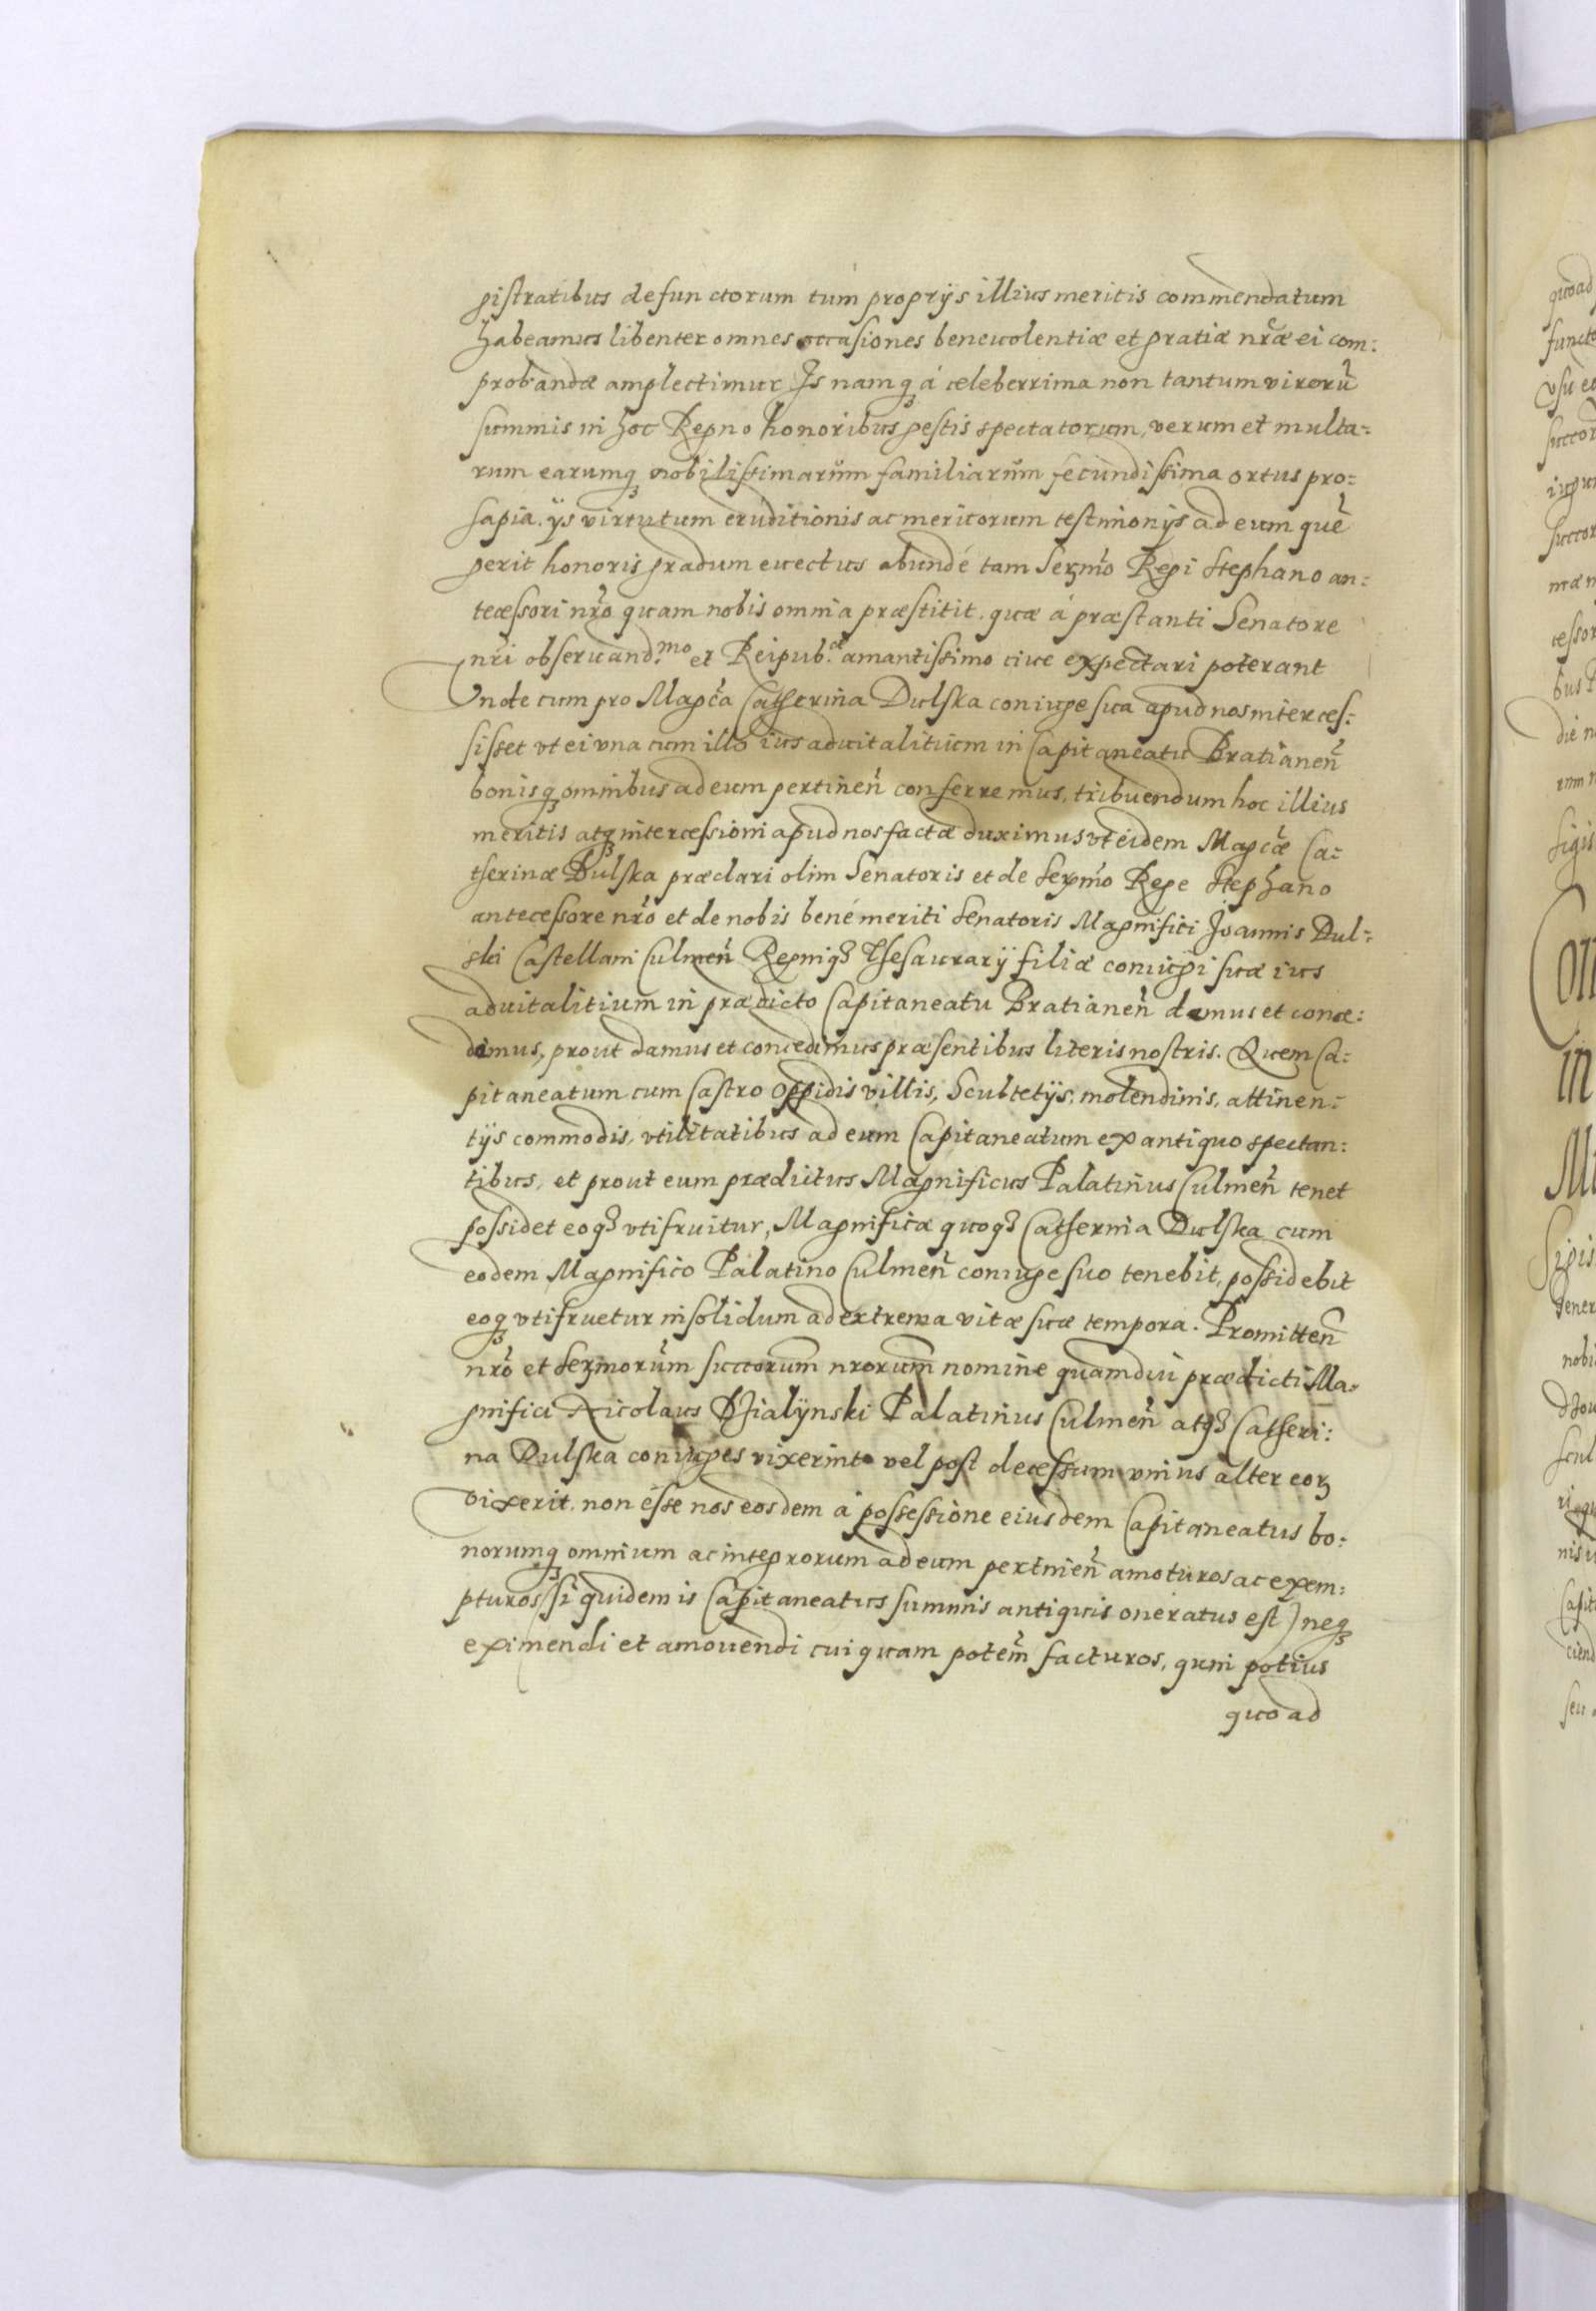 gistratibus defunctorum tum proprijs illius meritis commendatum
habeamus libenter omnes occasiones beneuolentiæ et gratiæ nr̃æ ei com:
probandæ amplectimur Is namq́ꝫ á celeberrima non tantum viroru᷉
summis in hoc Regno honoribus gestis spectatorum, verum et multa:
rum earumqꝫ nobilissimarum familiarum fecundissima ortus pro:
sapia. ijs virtutum eruditionis ac meritorum testimonijs ad eum que᷉
gerit honoris gradum euectus abundé tam Serm̃o Regi Stephano an:
tecessori nr̃o quam nobis omnia præstitit. quæ á præstanti Senatore
nr̃i obseruand.mo et Reipub.æ amantissimo ciue expectari poterant
Vnde cum pro Magc̃a Catherina Dulska coniuge sua apud nos interces:
sisset vt ei vna cum illo ius aduitalitium in Capitaneatu Bratianeñ
bonisqꝫ omnibus ad eum pertineñ conferremus, tribuendum hoc illius
meritis atqꝫ intercessioni apud nos factæ duximus vt eidem Magc̃æ Ca:
therinæ Dulska præclari olim Senatoris et de Serm̃o Rege Stephano
antecessore nr̃o et de nobis bené meriti Senatoris Magnifici Joannis Dul:
ski Castellani Culmeñ Regniqꝫ Thesaurarij filiæ coniugi suæ ius
aduitalitium in prædicto Capitaneatu Bratianeñ damus et conce:
dimus, prout damus et concedimus præsentibus literis nostris. Quem Ca:
pitaneatum cum Castro Oppidis villis, Scultetijs, molendinis, attinen:
tijs commodis, vtilitatibus ad eum Capitaneatum ex antiquo spectan:
tibus, et prout eum prædictus Magnificus Palatinus Culmeñ tenet
possidet eoqꝫ vtifruitur, Magnifica quoqꝫ Catherina Dulska cum
eodem Magnifico Palatino Culmeñ coniuge suo tenebit, possidebit
eoqꝫ vtifruetur in solidum ad extrema vitæ suæ tempora. Promitteñ
nr̃o et Serm̃orum succorum nrorum nomine quamdiu prædicti Ma:
gnifici Nicolaus Dzialÿnski Palatinus Culmeñ atqꝫ Catheri:
na Dulska coniuges vixerint vel post decessum vnius alter eorꝫ
vixerit. non esse nos eosdem á possessione eiusdem Capitaneatus bo:
norumqꝫ omnium ac integrorum ad eum pertineñ amoturos ac exem:
pturos (si quidem is Capitaneatus summis antiquis oneratus est) neqꝫ
eximendi et amouendi cuiquam potem̃ facturos, quin potius
quo ad